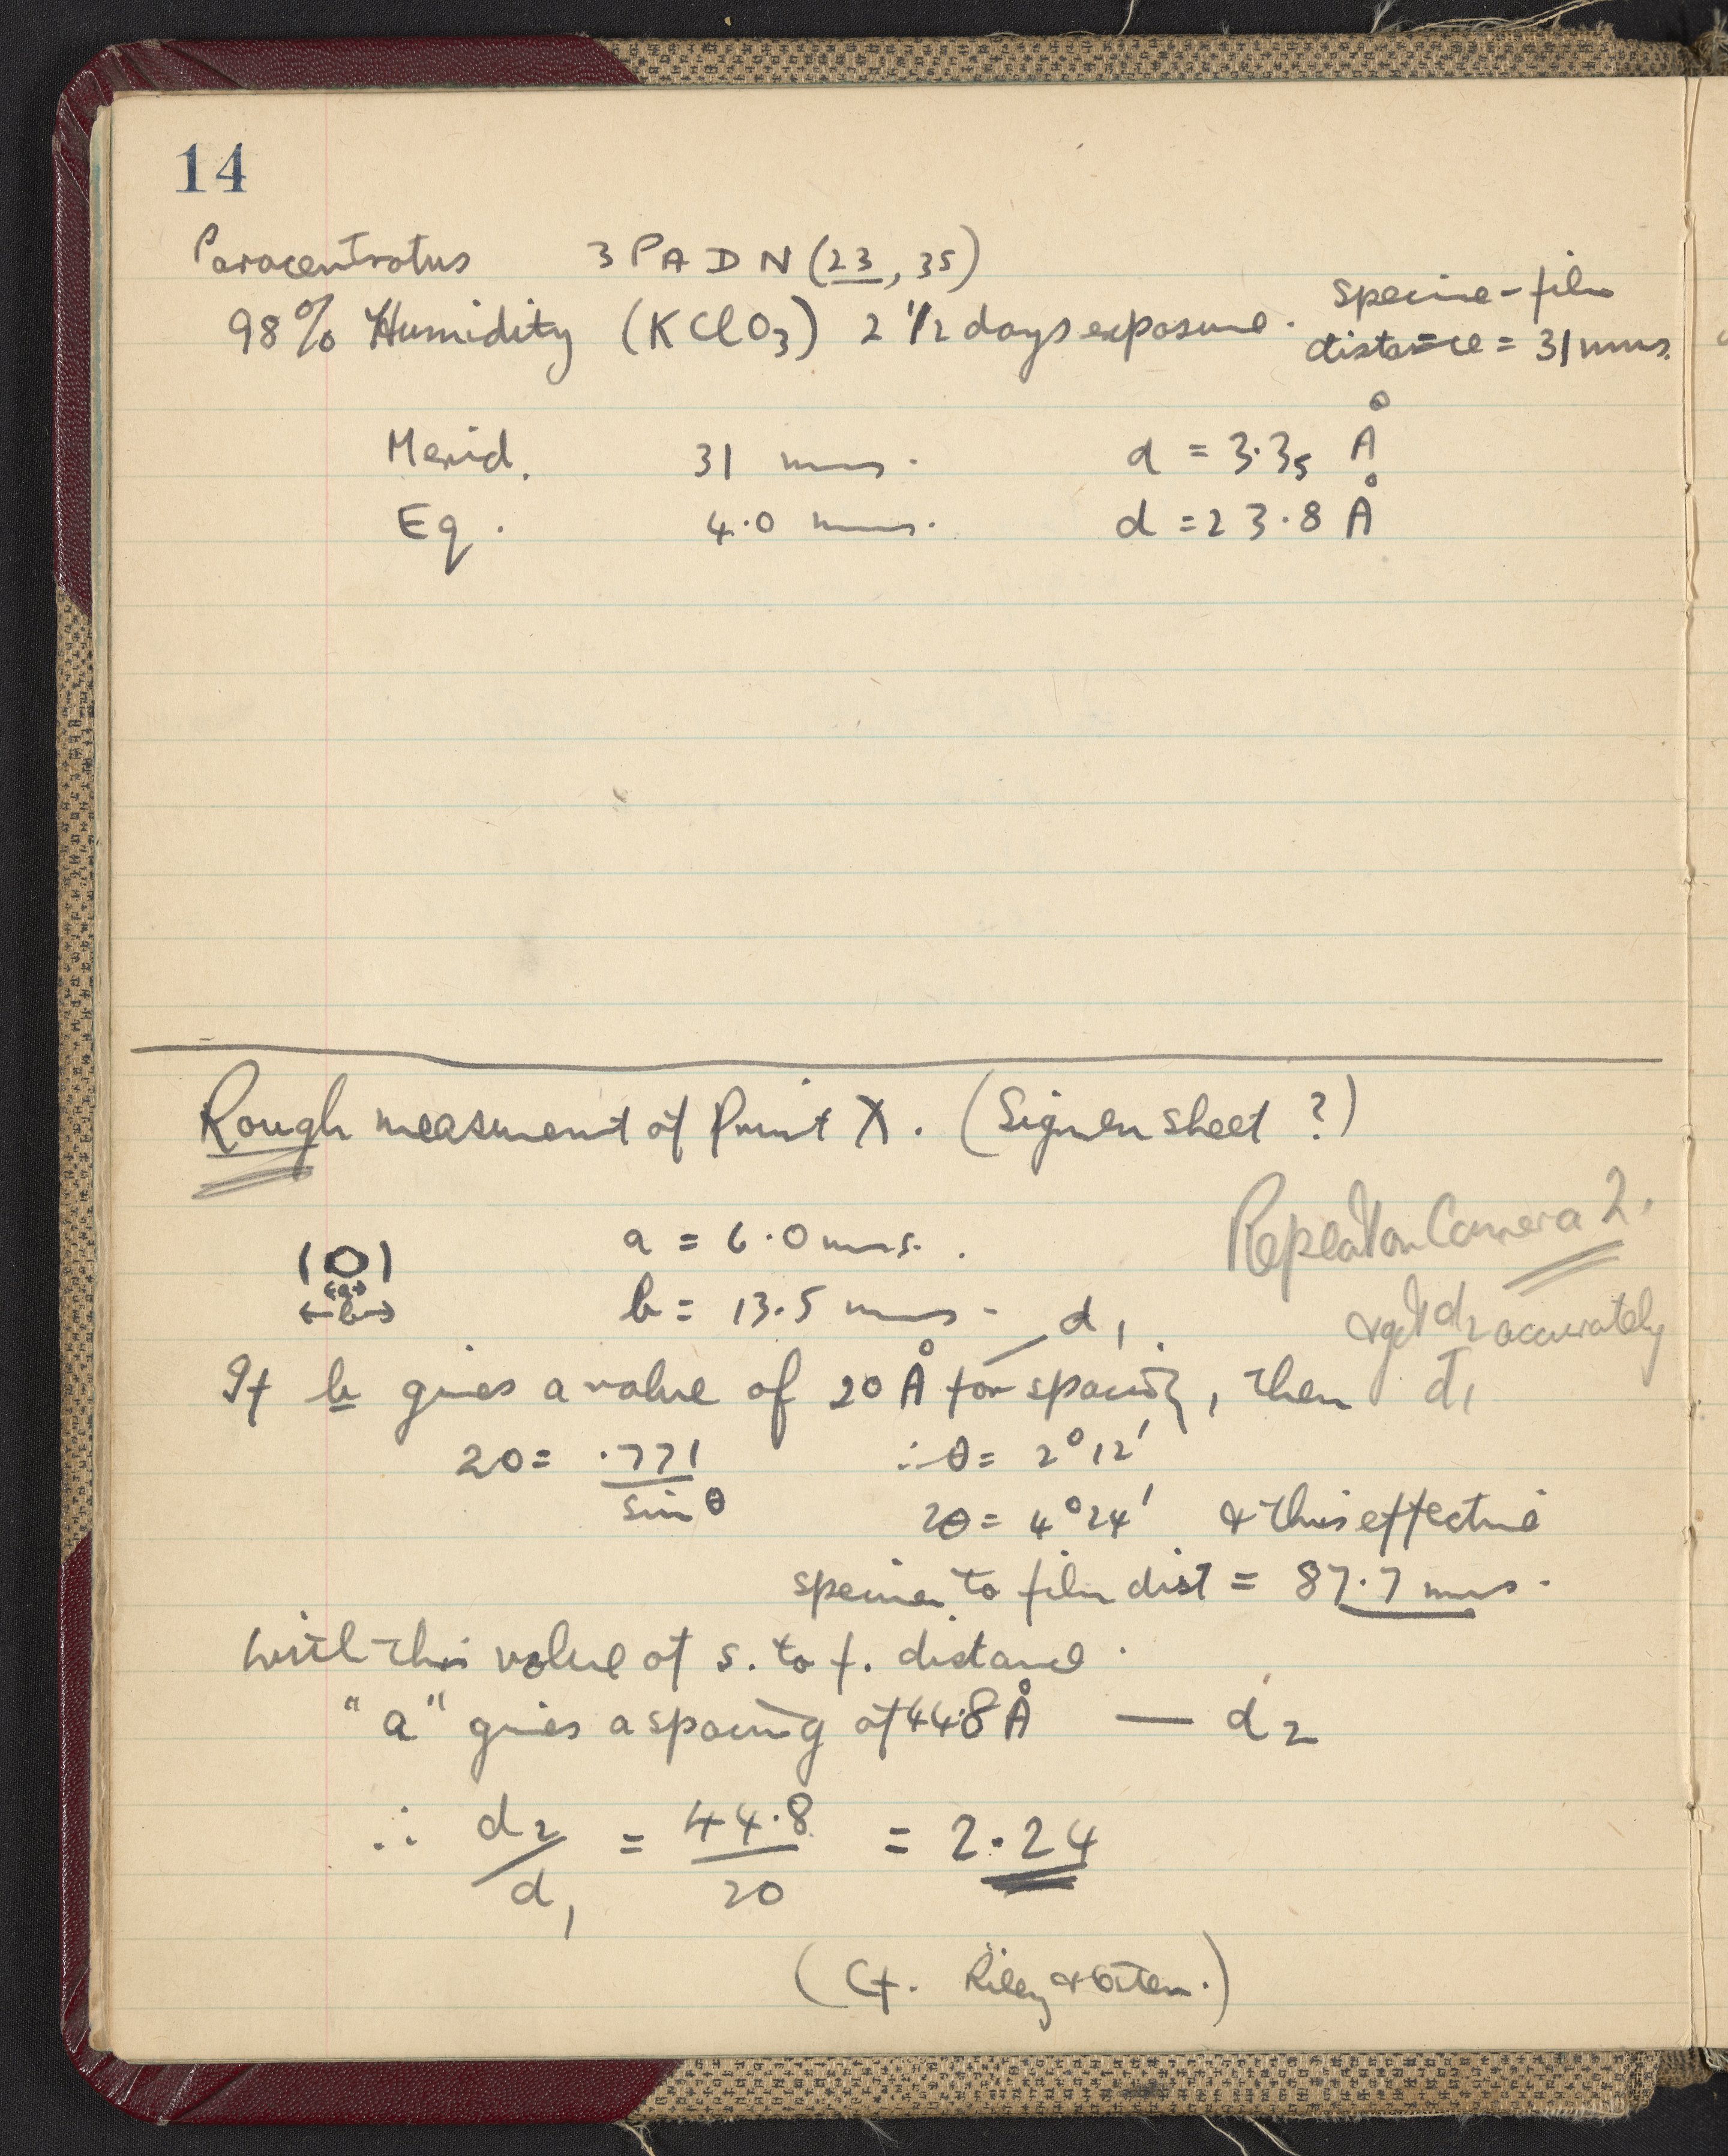 14
Paracentrotus 3 PADN (23, 35)
98% Humidity (KClO3) 2 1/2 days exposure. specime-film
distance = 31 mms.
Merid. 31 mms. d = 3.35 Å
Eq. 4.0 mms. d = 23.8 Å
Rough measurment of Print X. (Signer sheet ?)
Repeat on Camera 2.
& get d2 accurately
(O) a = 6.0 mms.
a
b b = 13.5 mms - d1
If b gives a value of 20 Å for spacing, then d1
20 = .771 / sin θ ∴ θ = 2° 12'
2θ = 4° 24' & this effective
specimen to film dist = 87.7 mms.
With this value of s. to f. distance.
"a" gives a spacing of 44.8 Å — d2
∴ d2/d1 = 44.8/20 = 2.24
(Cf. Riley & Oster.)